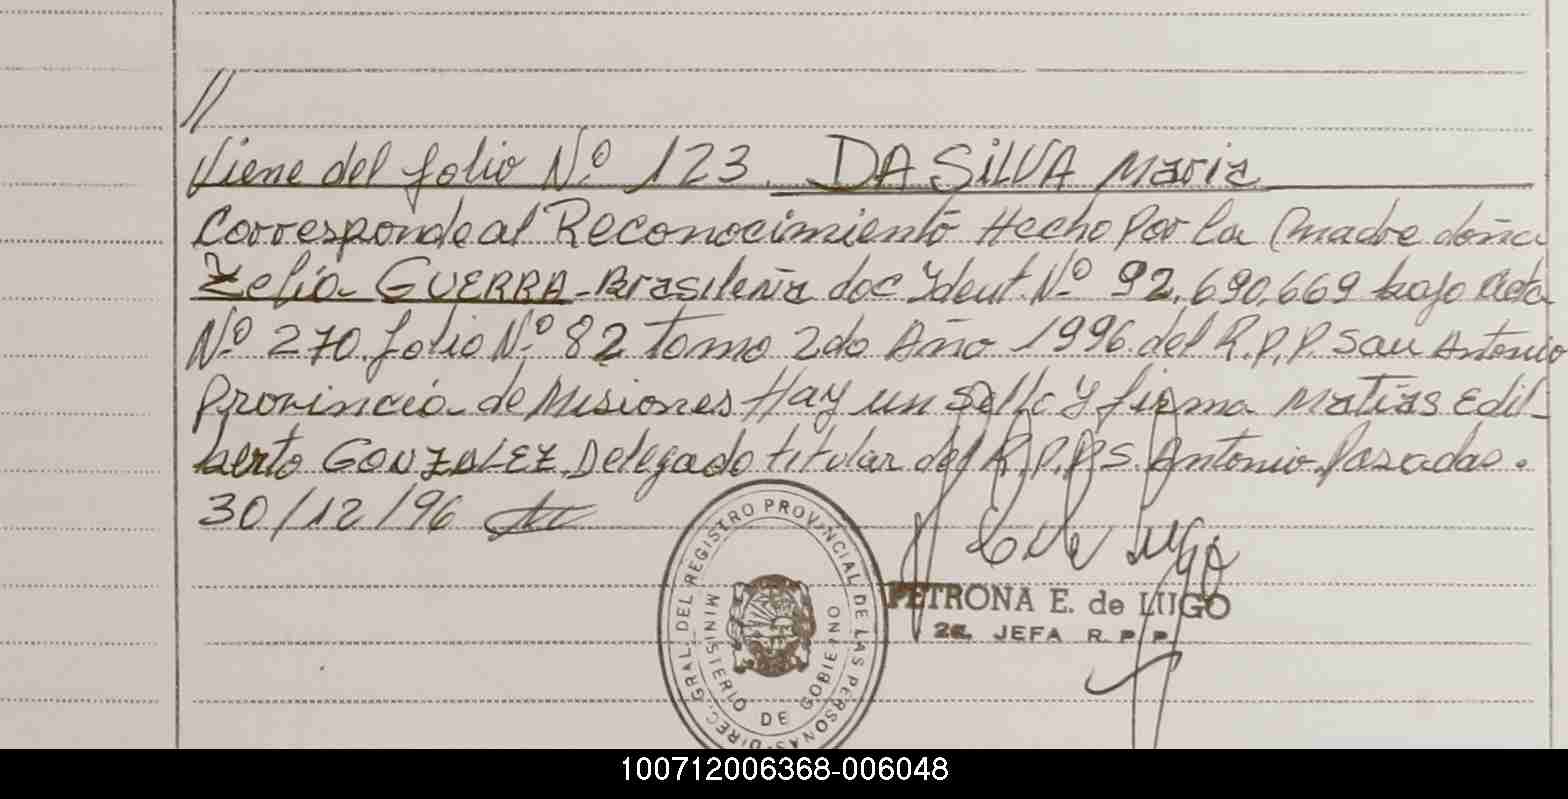 //
Viene del folio Nº 123. DA SiLVA Maria
Corresponde al Reconocimiento Hecho Por la Madre doña
Zelia GUERRA - Brasileña doc Ident. Nº 92.690.669 bajo Acta
Nº 270 folio Nº 82 Tomo 2do Año 1996 del R.P.P. San Antonio
Provincia de Misiones Hay un Sello y firma Matias Edil-
berto GONZALEZ Delegado titular del R.P.P. S. Antonio. Posadas.
30/12/96
P. E. de Lugo
PETRONA E. de LUGO
2a. JEFA R. P. P.
DIREC. GRAL. DEL REGISTRO PROVINCIAL DE LAS PERSONAS
MINISTERIO DE GOBIERNO
100712006368-006048